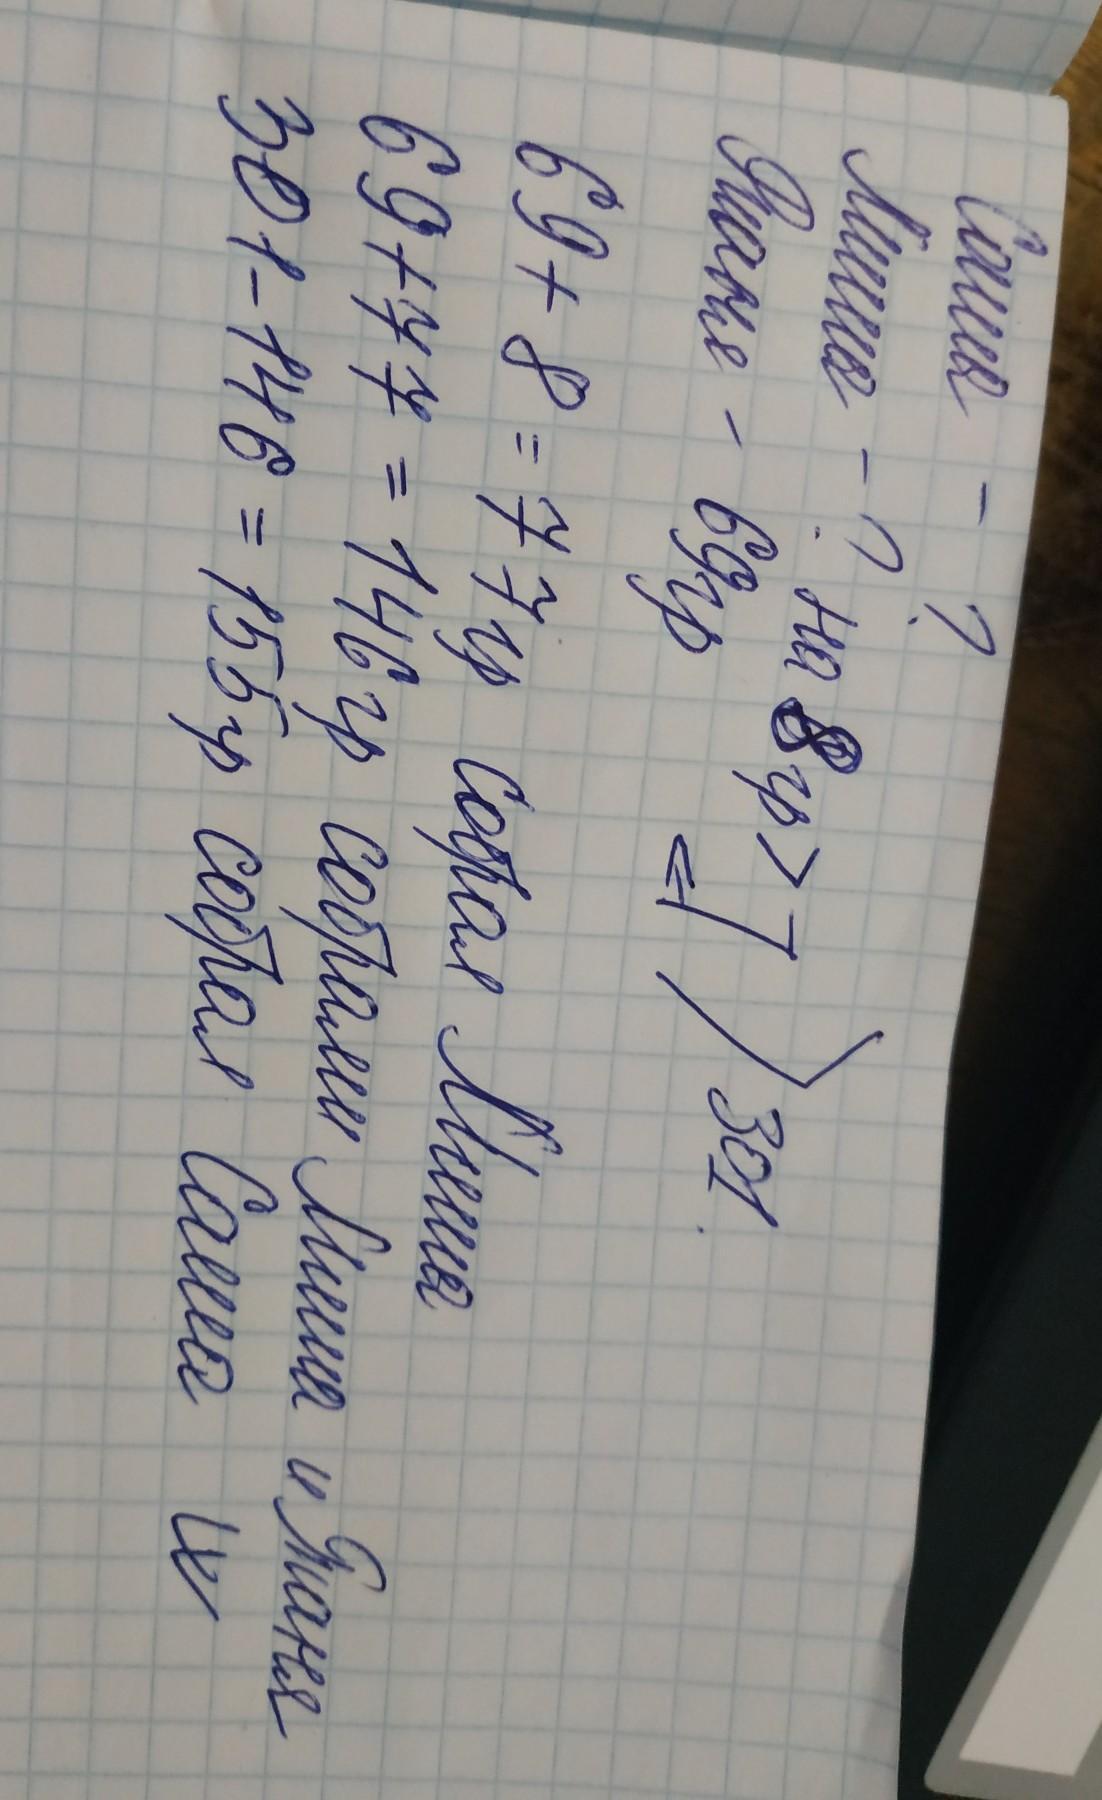 Саша - ?
Миша - ? на 8 гр >
Таня - 69гр 301
69 + 8 = 77гр собрал Миша
69 + 77 = 146гр собрали Миша и Таня
301 - 146 = 155гр собрал Саша